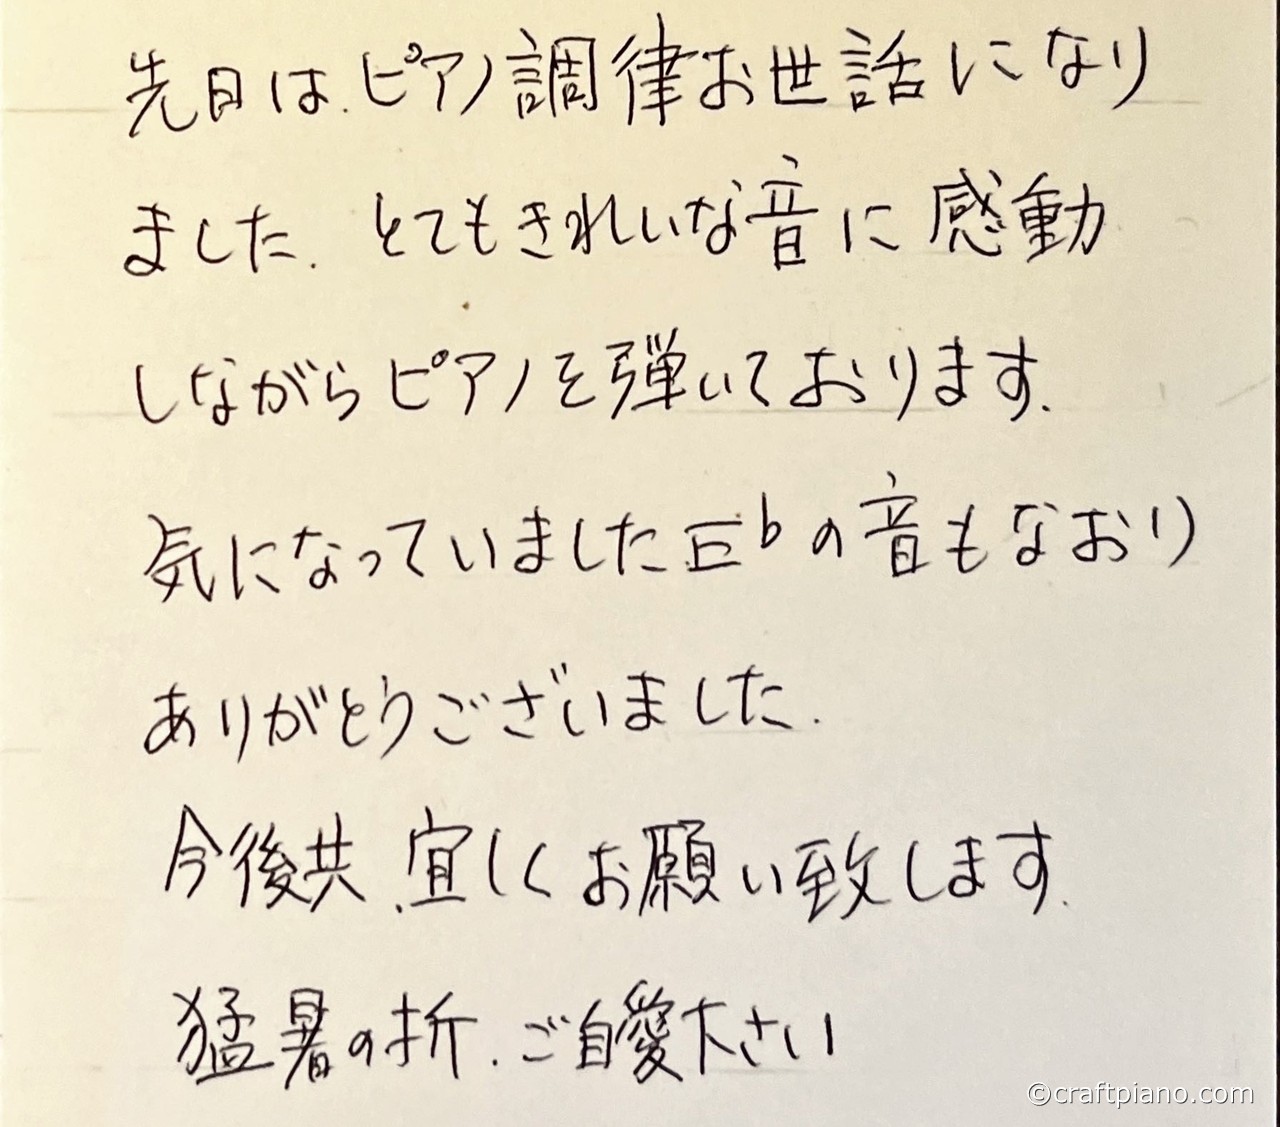 先日は、ピアノ調律お世話になり
ました。とてもきれいな音に感動
しながらピアノを弾いております。
気になっていましたE♭の音もなおり
ありがとうございました。
今後共、宜しくお願い致します。
猛暑の折、ご自愛下さい
©craftpiano.com